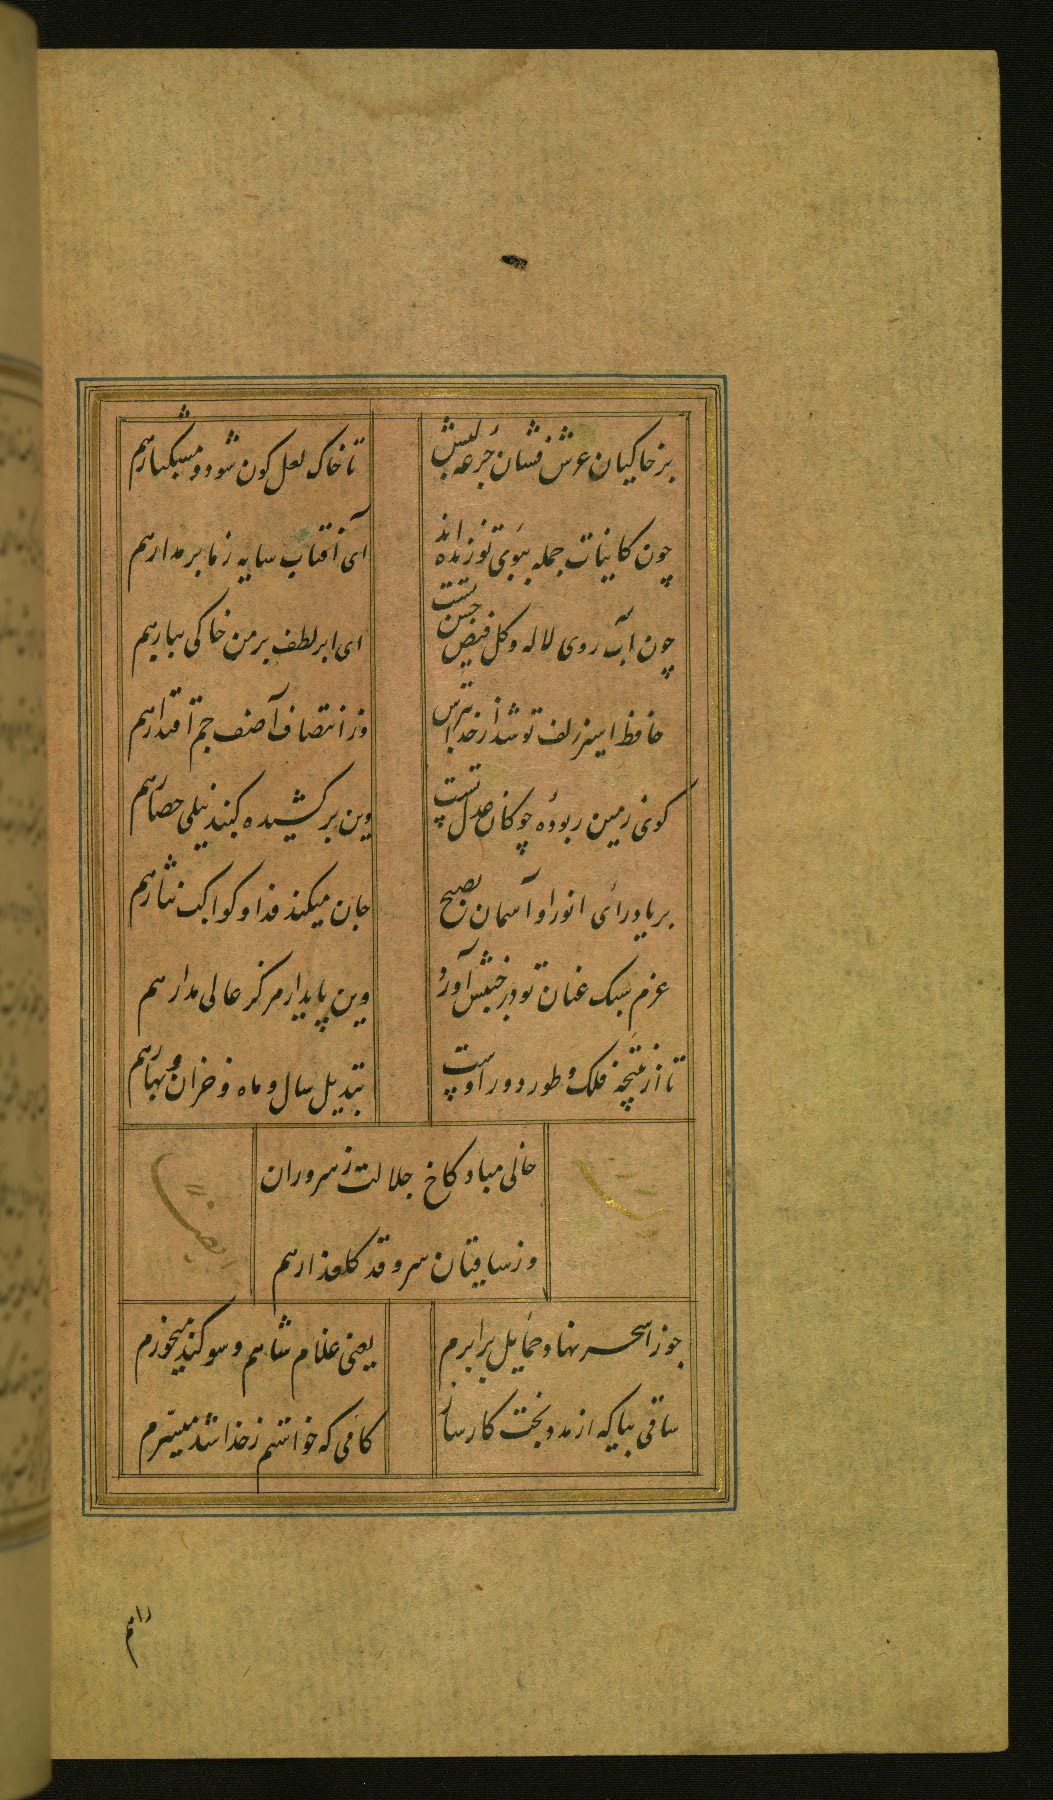 بر خاکیان عرش فشان جرعه لبش
تا خاک لعل کون شود و مشکبار هم
چون کاینات جمله ببوی تو زنده اند
ای آفتاب سایه ز ما بر مدار هم
چون آب روی لاله و کل فیض حسن تست
ای ابر لطف بر من خاکی ببار هم
حافظ اسیر زلف تو شد از خدا بترس
وز انتصاف آصف جم اقتدار هم
کوی زمین ربوده چوکان عدل تست
وین بر کشیده کنبد نیلی حصار هم
بر یاد رای انور او آسمان بصبح
جان میکند فدا و کواکب نثار هم
عزم سبک عنان تو در جنبش آورد
وین پایدار مرکز عالی مدار هم
تا از نتیجه فلک و طور دور اوست
تبدیل سال و ماه و خزان و بهار هم
خالی مباد کاخ جلالت ز سروران
وز ساقیان سرو قد کلعذار هم
جوزا سحر نهاد حمایل برابرم
یعنی غلام شاهم و سوکند میخورم
ساقی بیا که از مدد بخت کارساز
کامی که خواستم ز خدا شد میسرم